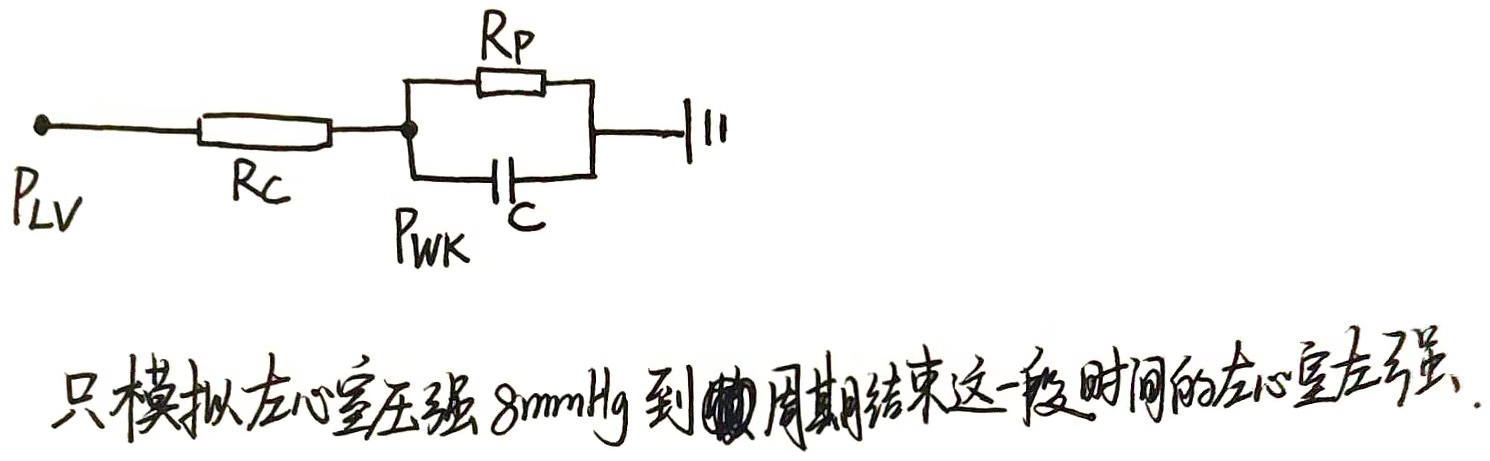 Rp
Rc
C
PLV
PWK
只模拟左心室压强8mmHg到周期结束这一段时间的左心室左强.